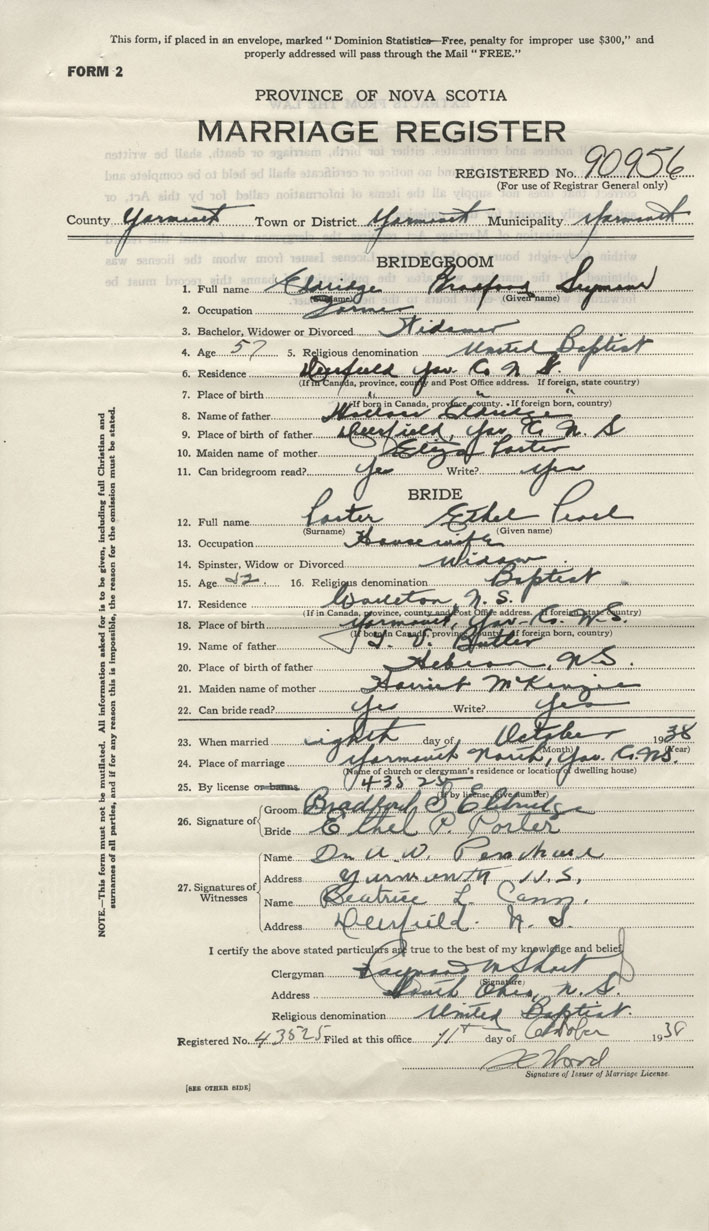 This form, if placed in an envelope, marked "Dominion Statistics—Free, penalty for improper use $300," and
properly addressed will pass through the Mail "FREE."
FORM 2
PROVINCE OF NOVA SCOTIA
MARRIAGE REGISTER
REGISTERED No. 90956
(For use of Registrar General only)
County Yarmouth Town or District Yarmouth Municipality Yarmouth
BRIDEGROOM
1. Full name Eldridge Bradford Seymour
(Surname) (Given name)
2. Occupation Farmer
3. Bachelor, Widower or Divorced Widower
4. Age 57 5. Religious denomination United Baptist
6. Residence Deerfield Yar. Co N. S.
(If in Canada, province, county and Post Office address. If foreign, state country)
7. Place of birth " " "
(If born in Canada, province, county. If foreign born, country)
8. Name of father Eldridge
9. Place of father Deerfield Yar Co N. S
10. Maiden name of mother Eliza Porter
11. Can bridegroom read? Yes Write? Yes
BRIDE
12. Full name Porter Ethel Pearl
(Surname) (Given name)
13. Occupation Housewife
14. Spinster, Widow or Divorced Widow
15. Age 52 16. Religious denomination Baptist
17. Residence Carleton, N. S.
(If in Canada, province, county and Post Office address. If foreign state country)
18. Place of birth Yarmouth, Yar. Co. N. S.
(If born in Canada, province county. If foreign born, country)
19. Name of father Butler
20. Place of birth of father Hebron, N. S.
21. Maiden name of mother Harriet McKenzie
22. Can bride read? Yes Write? Yes
23. When married eighth day of October 1938
(Month) (Year)
24. Place of marriage Yarmouth North, Yar. Co. N.S.
(Name of church or clergyman's residence or location of dwelling house)
25. By license or banns 43525
(If by license, give number)
26. Signature of Groom Bradford S Eldridge
Bride Ethel P. Porter
27. Signatures of Witnesses
Name
Address Yarmouth N. S.
Name Beatrice L. Cann.
Address Deerfield N. S.
I certify the above stated particulars are true to the best of my knowledge and belief.
Clergyman Raymond M Short
(Signature)
Address South Ohio, N. S.
Religious denomination United Baptist.
Registered No. 43525 Filed at this office 11th day of October 1938
Wood
Signature of Issuer of Marriage License.
[SEE OTHER SIDE]
NOTE.—This form must not be mutilated. All information asked for is to be given, including full Christian and
surnames of all parties, and if for any reason this is impossible, the reason for the omission must be stated.